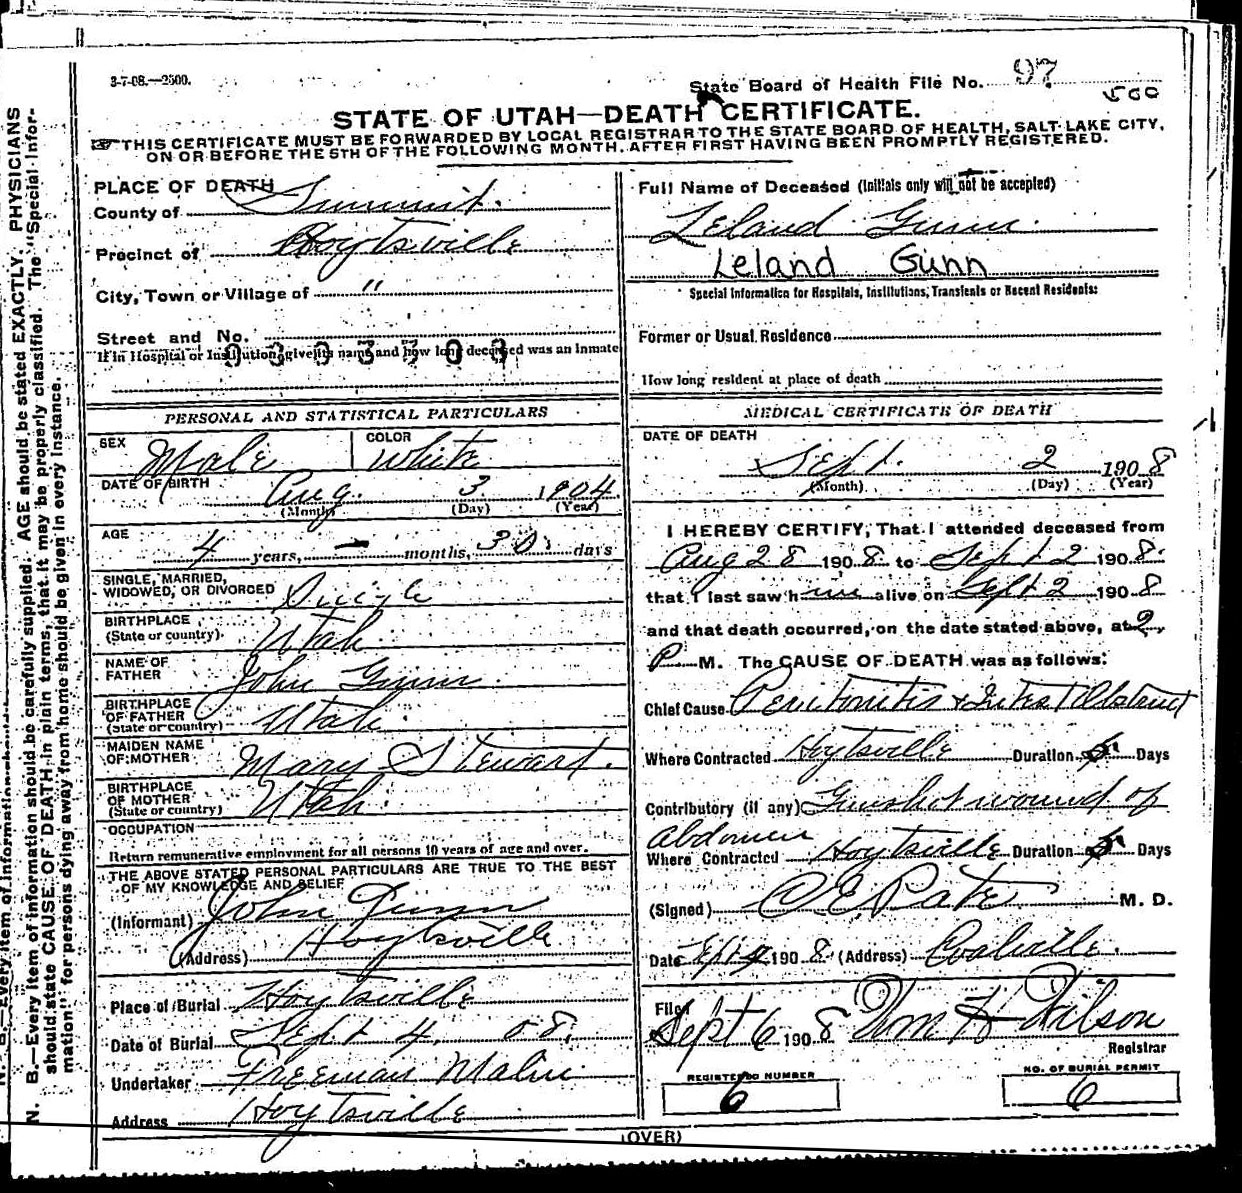 3-7-08.—2500.
State Board of Health File No. 97
500
STATE OF UTAH—DEATH CERTIFICATE.
THIS CERTIFICATE MUST BE FORWARDED BY LOCAL REGISTRAR TO THE STATE BOARD OF HEALTH, SALT LAKE CITY,
ON OR BEFORE THE 5TH OF THE FOLLOWING MONTH, AFTER FIRST HAVING BEEN PROMPTLY REGISTERED.
PLACE OF DEATH
County of Summit.
Precinct of Hoytsville
City, Town or Village of "
Street and No.
If in Hospital or Institution, give its name and how long deceased was an Inmate
Full Name of Deceased (Initials only will not be accepted)
Leland Gunn.
Leland Gunn
Special Information for Hospitals, Institutions, Transients or Recent Residents:
Former or Usual Residence
How long resident at place of death
PERSONAL AND STATISTICAL PARTICULARS
SEX Male COLOR White
DATE OF BIRTH Aug. 3 1904
(Month) (Day) (Year)
AGE 4 years, — months, 30 days
SINGLE, MARRIED,
WIDOWED, OR DIVORCED Single
BIRTHPLACE
(State or country) Utah
NAME OF
FATHER John Gunn
BIRTHPLACE
OF FATHER
(State or country) Utah.
MAIDEN NAME
OF MOTHER Mary Stewart.
BIRTHPLACE
OF MOTHER
(State or country) Utah.
OCCUPATION
Return remunerative employment for all persons 10 years of age and over.
THE ABOVE STATED PERSONAL PARTICULARS ARE TRUE TO THE BEST
OF MY KNOWLEDGE AND BELIEF
(Informant) John Gunn
(Address) Hoytsville
Place of Burial Hoytsville
Date of Burial Sept 4. 08.
Undertaker Freeman Malin
Address Hoytsville
MEDICAL CERTIFICATE OF DEATH
DATE OF DEATH
Sept. 2 1908
(Month) (Day) (Year)
I HEREBY CERTIFY, That I attended deceased from
Aug 28 1908 to Sept 2 1908.
that I last saw him alive on Sept 2 1908
and that death occurred, on the date stated above, at 2
P M. The CAUSE OF DEATH was as follows:
Chief Cause Peritonitis & Intest Obstruct
Where Contracted Hoytsville Duration 5 Days
Contributory (if any) Gunshot wound of
abdomen
Where Contracted Hoytsville Duration 5 Days
(Signed) M. D.
Date Sept 1908 (Address) Coalville.
Filed
Sept 6 1908 Wm H Wilson
Registrar
REGISTERED NUMBER
6
NO. OF BURIAL PERMIT
6
(OVER)
N. B.—Every item of information should be carefully supplied. AGE should be stated EXACTLY. PHYSICIANS
should state CAUSE OF DEATH in plain terms, that it may be properly classified. The "Special Infor-
mation" for persons dying away from home should be given in every instance.